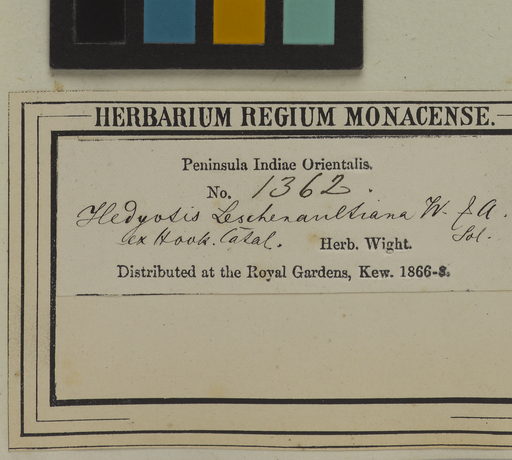 HERBARIUM REGIUM MONACENSE.
Peninsula Indiae Orientalis.
No. 1362.
Hedyotis Leschenaultiana W. & A.
ex Hook. Catal. Herb. Wight.
Distributed at the Royal Gardens, Kew. 1866-8.